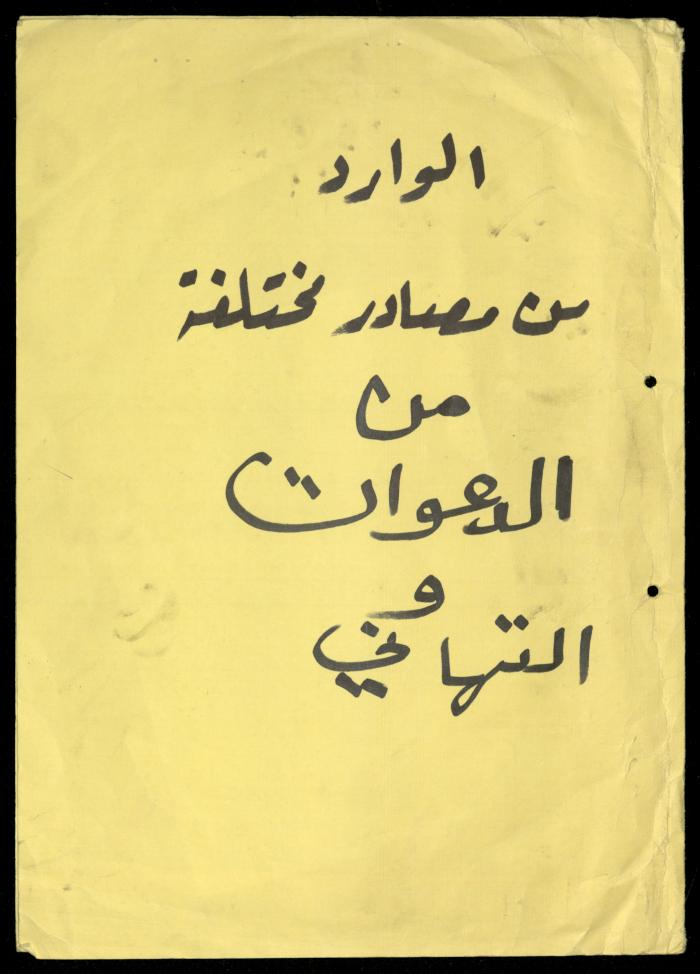 الوارد
من مصادر مختلفة
من
الدعوات
و
التهاني